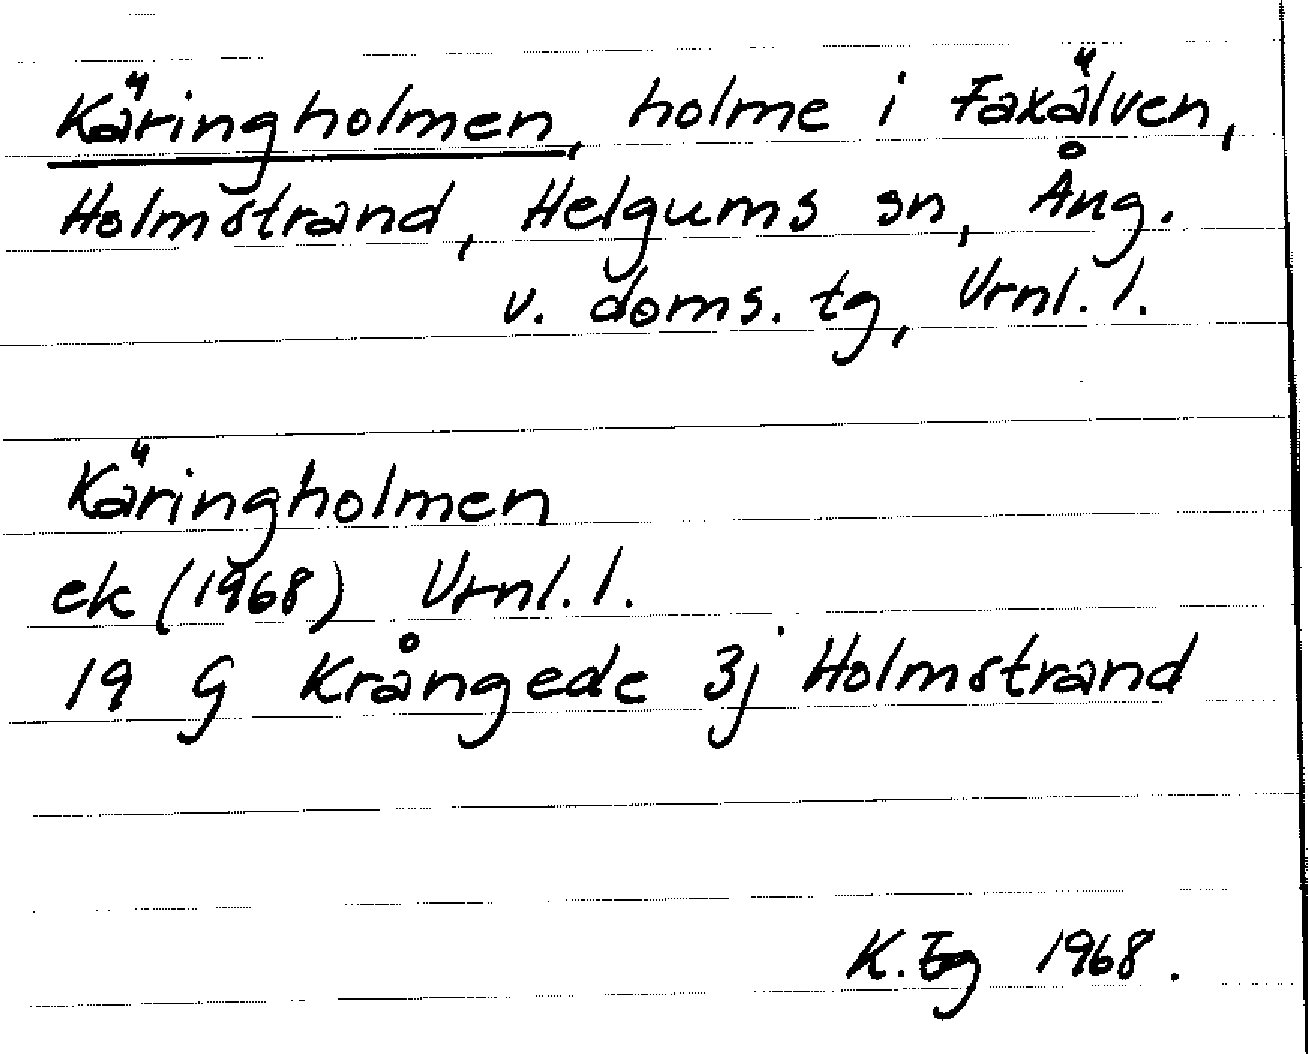 Käringholmen, holme i Faxälven,
Holmstrand, Helgums sn, Ång.
v. doms. tg, Vrnl. l.
Käringholmen
ek (1968) Vrnl. l.
19 G Krångede 3j Holmstrand
K. Eg 1968.